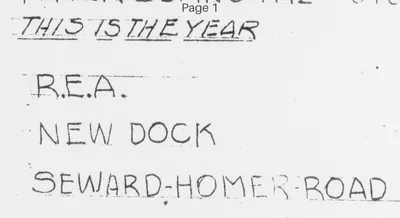 Page 1
THIS IS THE YEAR
R.E.A.
NEW DOCK
SEWARD-HOMER-ROAD